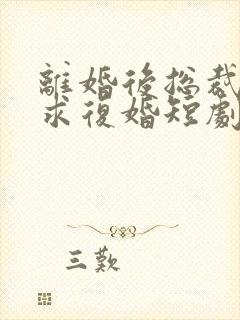 離婚後總裁
求復婚短劇
三歎